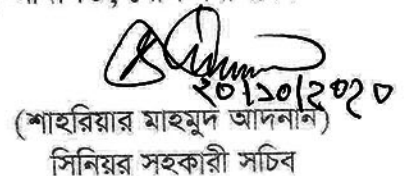 ২০/১০/২০২০
(শাহরিয়ার মাহমুদ আদনান)
সিনিয়র সহকারী সচিব